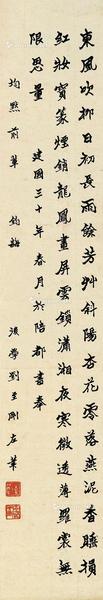 東風吹柳日初長雨餘芳艸斜陽杏花零落燕泥香睡損
紅妝寶篆煙銷龍鳳畫屏雲鎖瀟湘夜寒微透薄羅裳無
限思量 建國三十年春月於陪都書奉
均默前輩 鈞誨
後學劉
左華